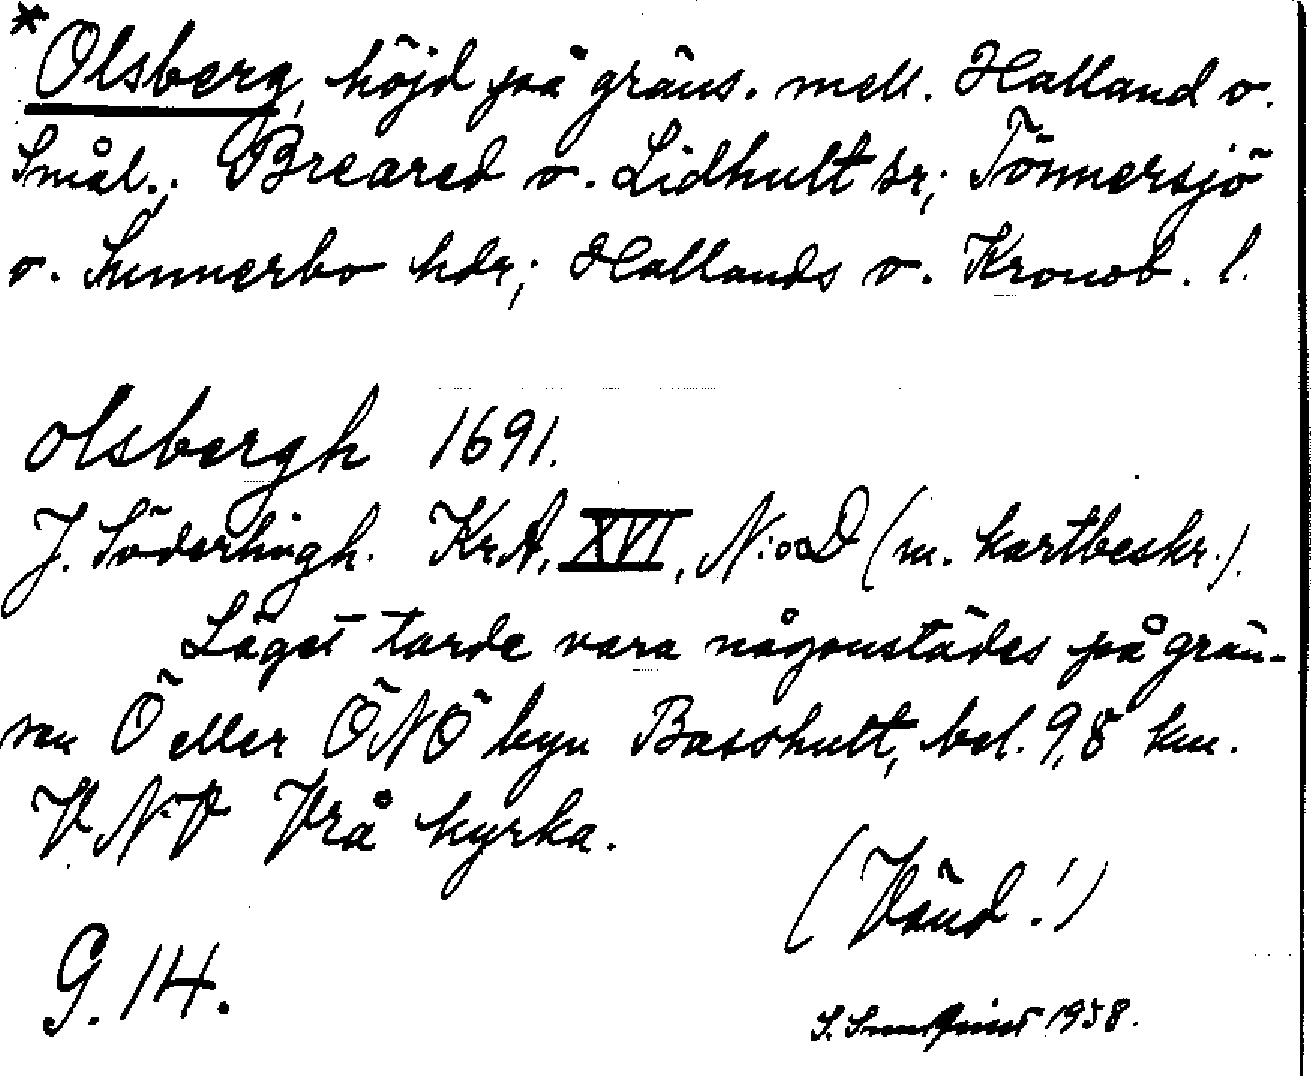 *Olsberg, höjd på gräns. mell. Halland o.
Smål.; Breared o. Lidhult sr; Tönnersjö
o. Sunnerbo hdr; Hallands o. Kronob. l.
olsbergh 1691.
J. Söderlingh. Kr.A. XVI, N:o D (m. kartbeskr.).
Läget torde vara någonstädes på grän-
sen Ö eller ÖNÖ byn Basshult, bel. 9,8 km.
V.N.V Vrå kyrka.
(Vänd!)
G. 14.
S. Sundquist 1958.